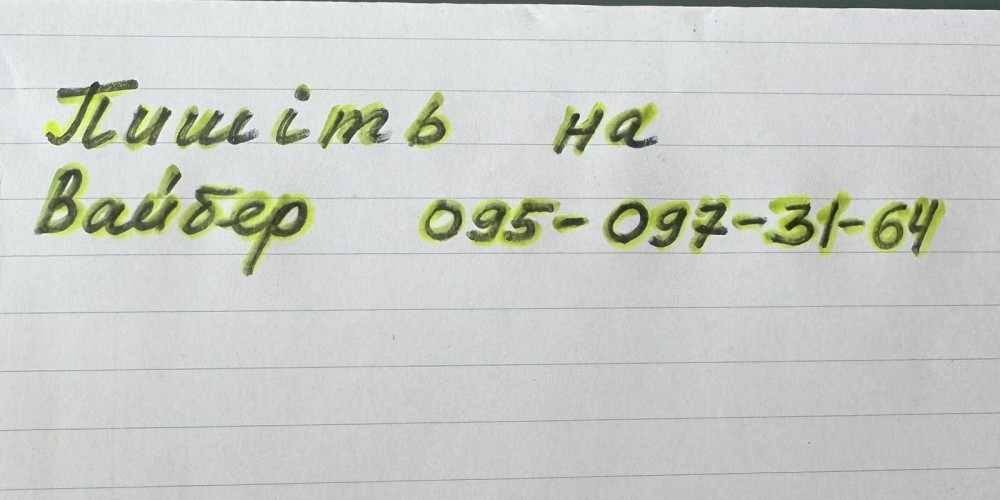 Пишіть на
Вайбер 095-097-31-64